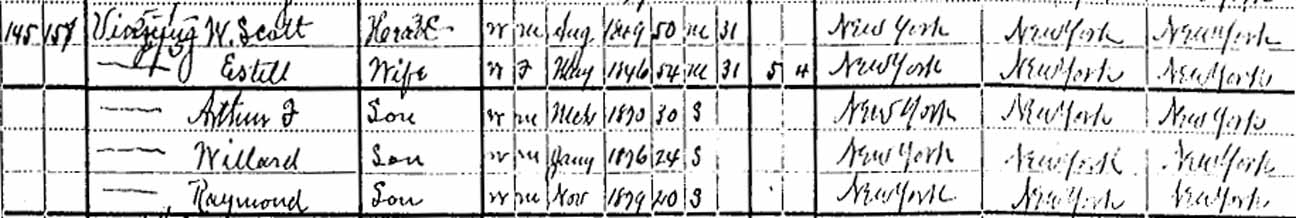 145 157 W. Scott Head W M Aug 1849 50 M 31 New York New York New York
— Estell Wife W F May 1846 54 M 31 5 4 New York New York New York
— Arthur F Son W M Mch 1870 30 S New York New York New York
— Willard Son W M Jany 1876 24 S New York New York New York
— Raymond Son W M Nov 1879 20 S New York New York New York